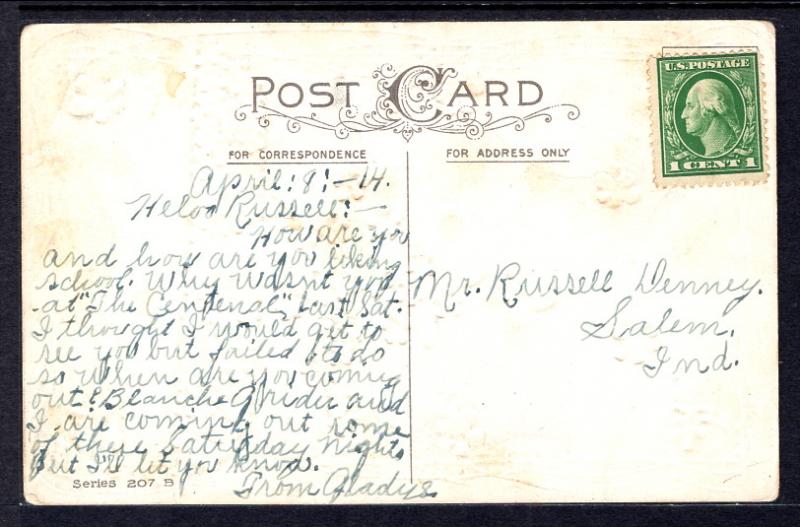 POST CARD
U.S. POSTAGE
1 CENT 1
FOR CORRESPONDENCE
FOR ADDRESS ONLY
April: 8: - 14.
Helo Russell: -
How are you
and how are you likeing
school. Why wasn't you
at "The Centenal" last Sat.
I thought I would get to
see you but failed to do
so When are you coming
out? Blanche Grider and
I are coming out some
of these Saturday nights
but I'll let you know.
From Gladys
Series 207 B
Mr. Russell Denney.
Salem,
Ind.